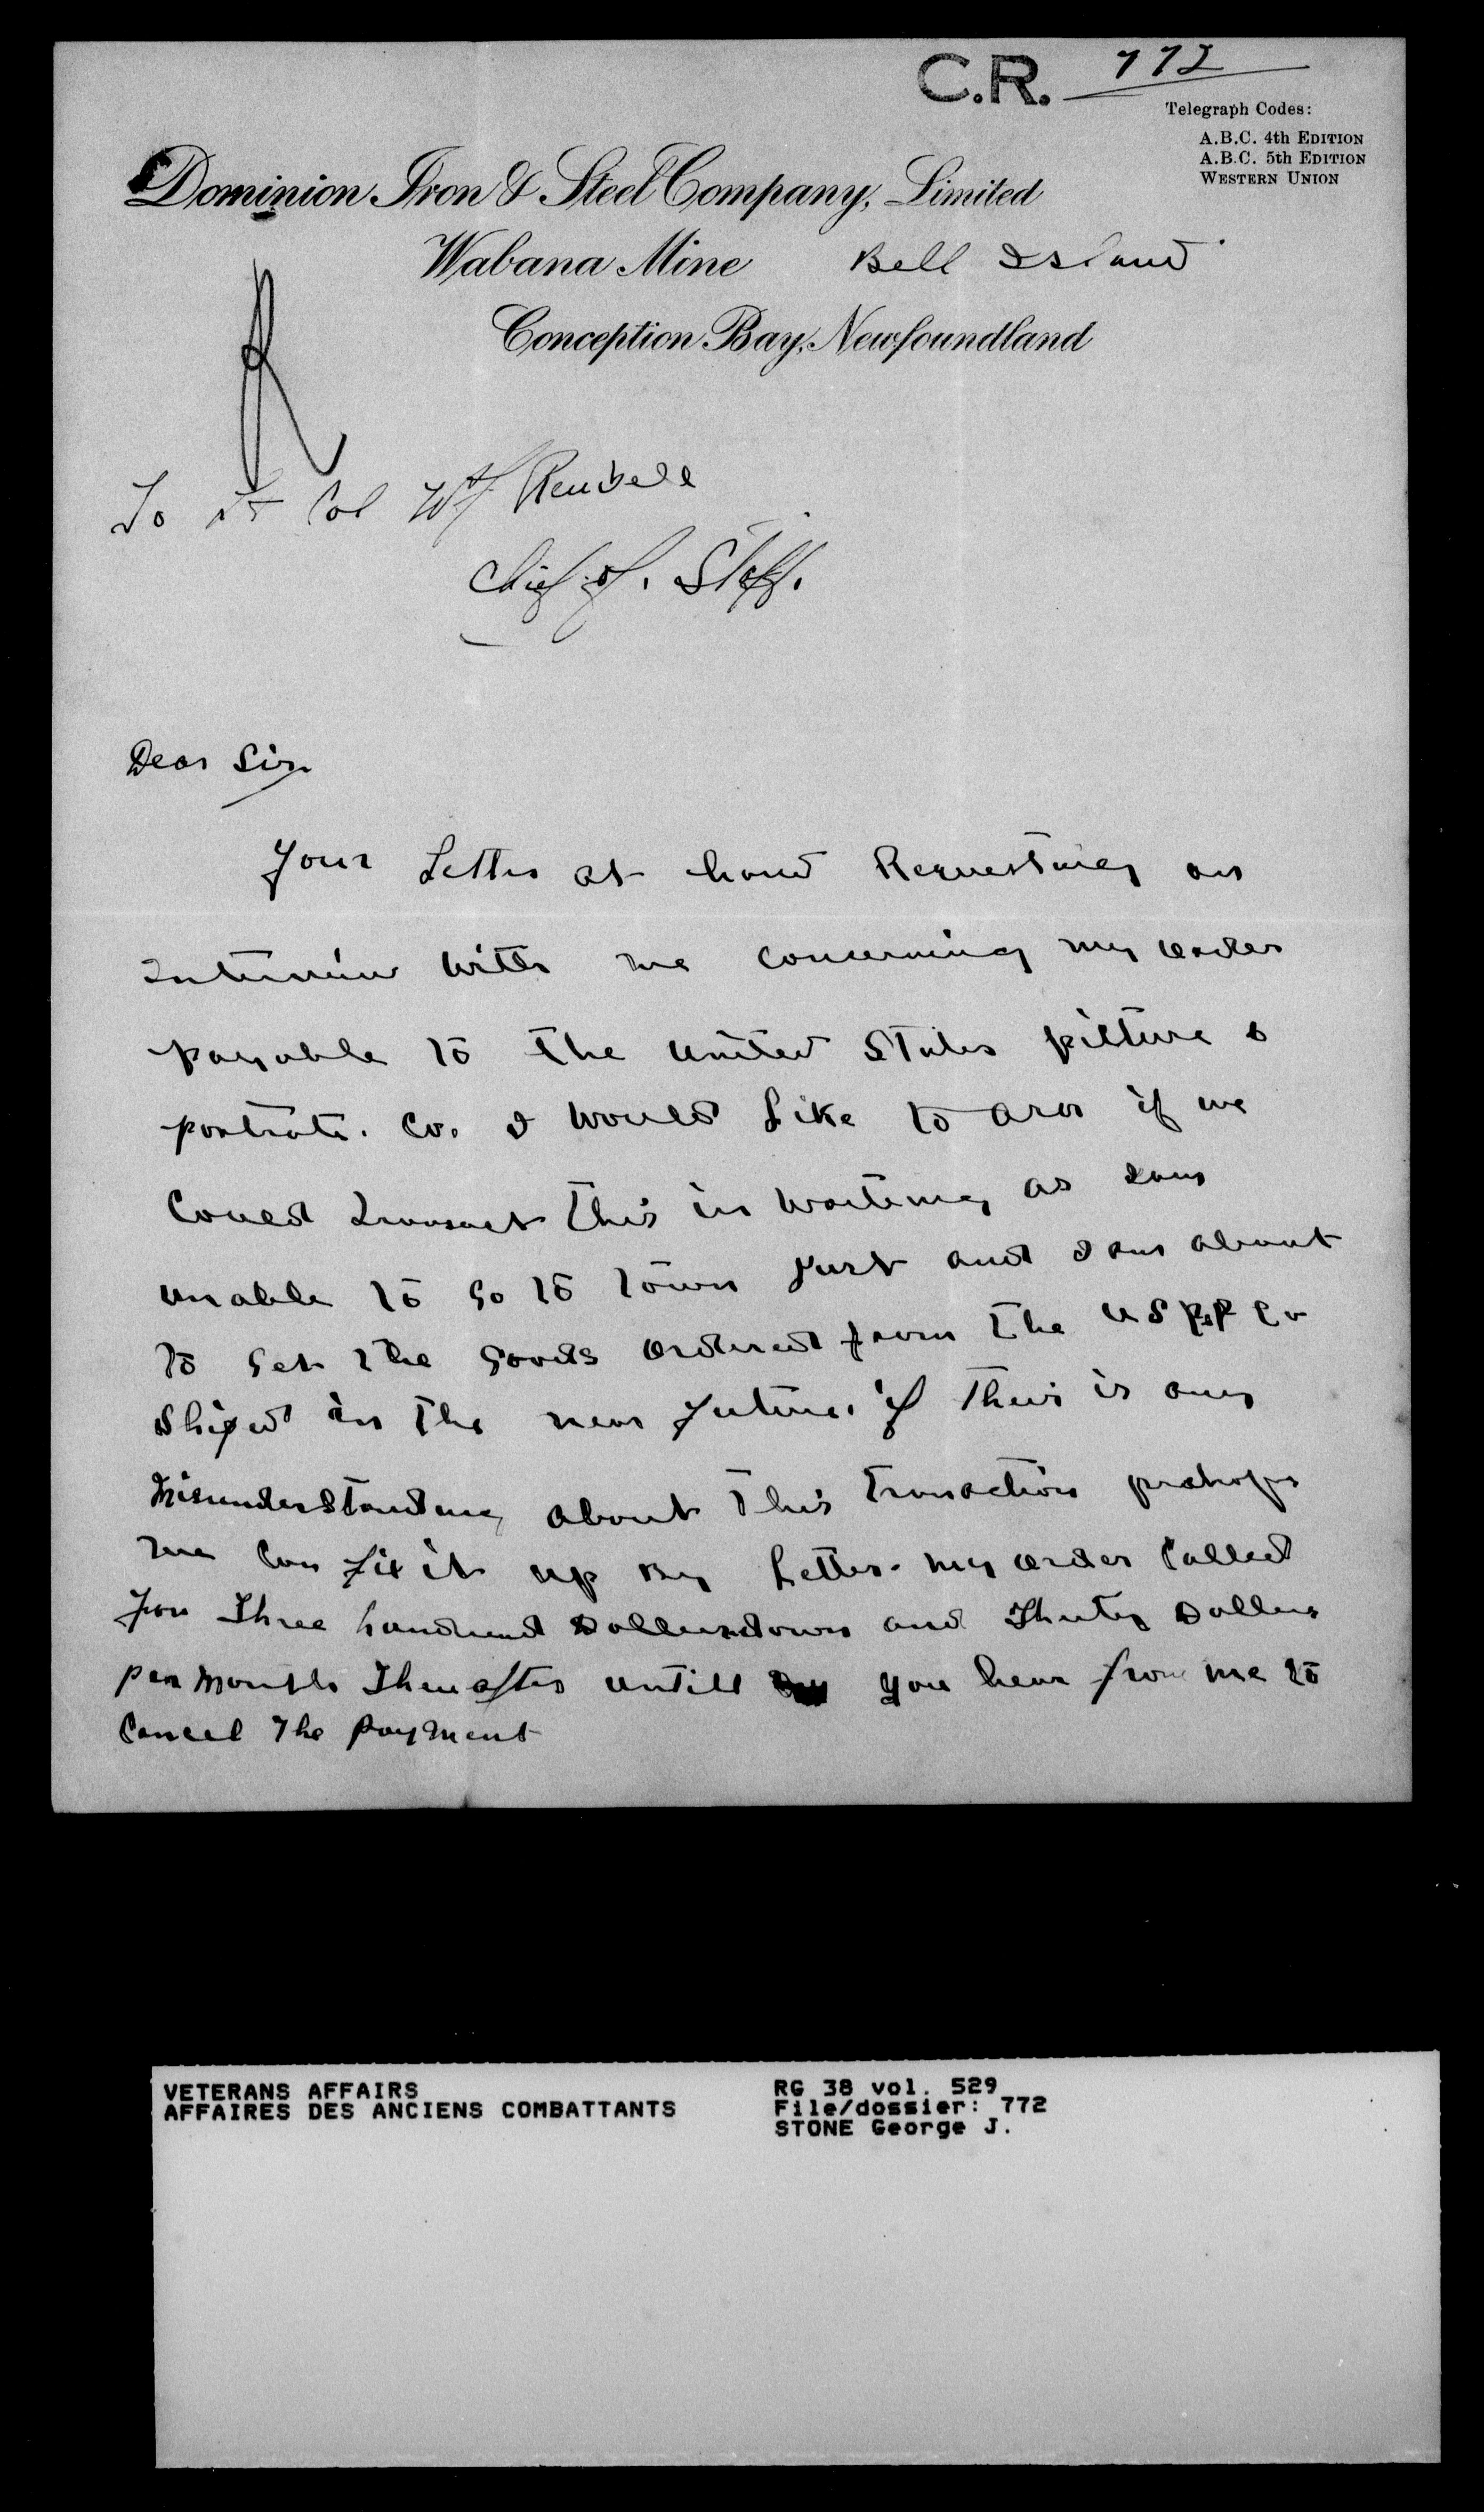 C.R. 772
Telegraph Codes:
A.B.C. 4th EDITION
A.B.C. 5th EDITION
WESTERN UNION
Dominion Iron & Steel Company, Limited
Wabana Mine Bell Island
Conception Bay, Newfoundland
To Lt Col Wf Rendell
Chief of. Staff.
Dear Sir
Your Letter at hand Requesting an
interview with me concerning my order
payable to the United States picture &
portrait. Co. I would like to ask if we
Could transact this in writing as I am
unable to go to town just and I am about
to get the goods ordered from the U S P & P Co
Shiped in the near future. if their is any
Misunderstanding about this transaction
we Can fix it up By Letter. my order Called
For Three hundred Dollars down and Thirty Dollars
per month Thereafter untill you hear from me to
Cancel the payment
VETERANS AFFAIRS
AFFAIRES DES ANCIENS COMBATTANTS
RG 38 vol. 529
File/dossier: 772
STONE George J.